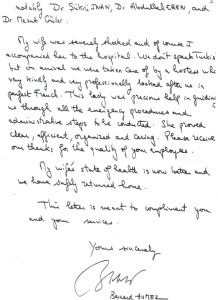 notably Dr Sükrü JNAN, Dr Abdullah EREN, and
Dr Mesut
My wife was severely shocked and of course I
accompanied her to the hospital. We don't speak Turkish
but on arrival we were taken care of by a hostess who
very kindly and very professionally looked after us in
perfect French. This lady was precious help in guiding
us through all the emergency procedures and
administrative steps to be conducted. She proved
clear, efficient, organized and caring. Please receive
our thanks for the quality of your employees.
My wife's state of health is now better and
we have safely returned home.
This letter is meant to compliment you
and your services.
Yours sincerely